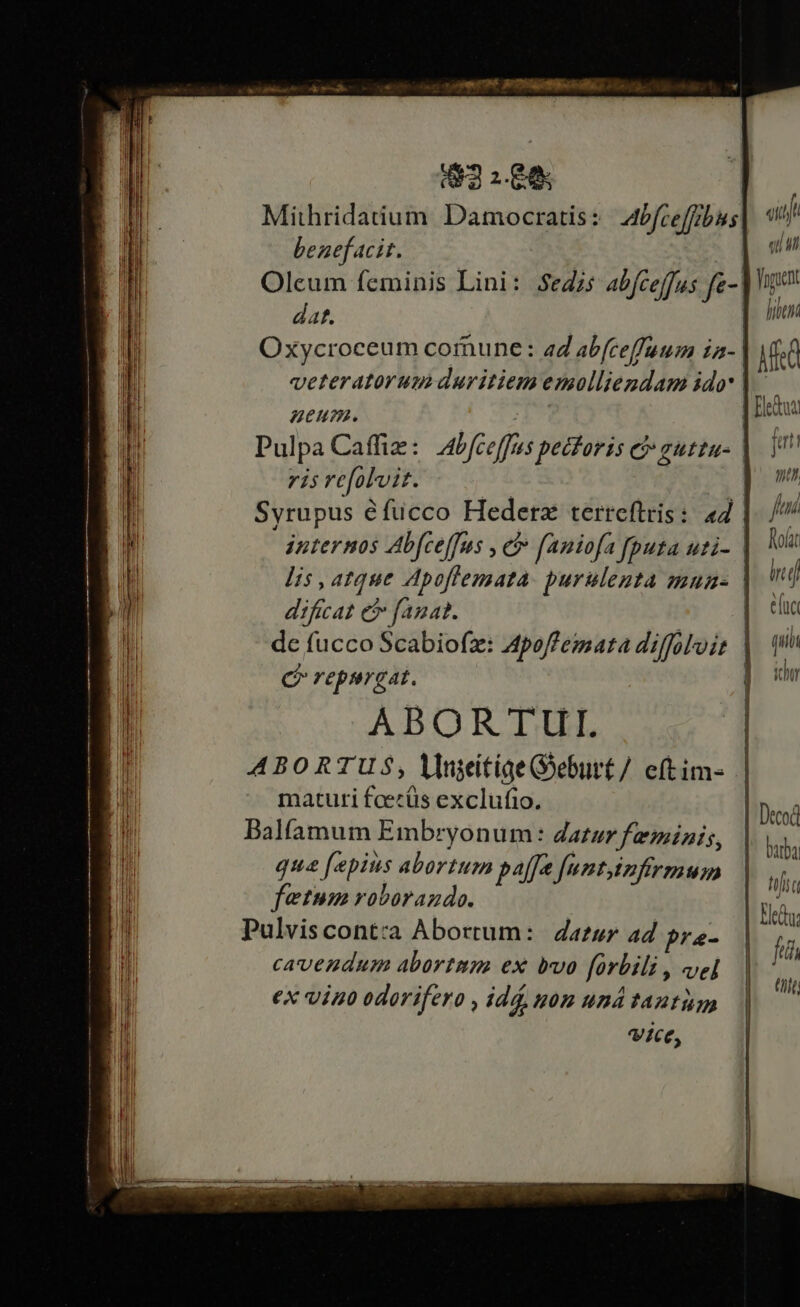 2.
Mithridatium Damocratis: Abſceſſibus
benefacit.
Oleum ſeminis Lini: Sedis abſceſſus ſe-
dat.
Oxycroceum com̃une: ad abſceſſuum in-
veteratorum duritiem emolliendam ido-
neum.
Pulpa Caſſiæ: Abſceſſus pectoris & guttu-
ris reſolvit.
Syrupus è ſucco Hederæ terreſtris: ad
internos Abſceſſus, & ſanioſa ſputa uti-
lis, atque Apoſtemata purulenta mun-
dificat & ſanat.
de ſucco Scabioſæ: Apoſtemata diſſolvit
& repurgat.
ABORTUI.
ABORTUS, Unzeitige Geburt / eſt im-
maturi fœtûs excluſio.
Balſamum Embryonum: datur fœminis,
quæ ſæpiùs abortum paſſæ ſunt, infirmum
fœtum roborando.
Pulvis contra Abortum: datur ad præ-
cavendum abortum ex ovo ſorbili, vel
ex vino odorifero, idq́, non unâ tantùm
vice,
Vnguent
Affect
Electua
fert
Roſat
quib
Decoct
barba
Electu